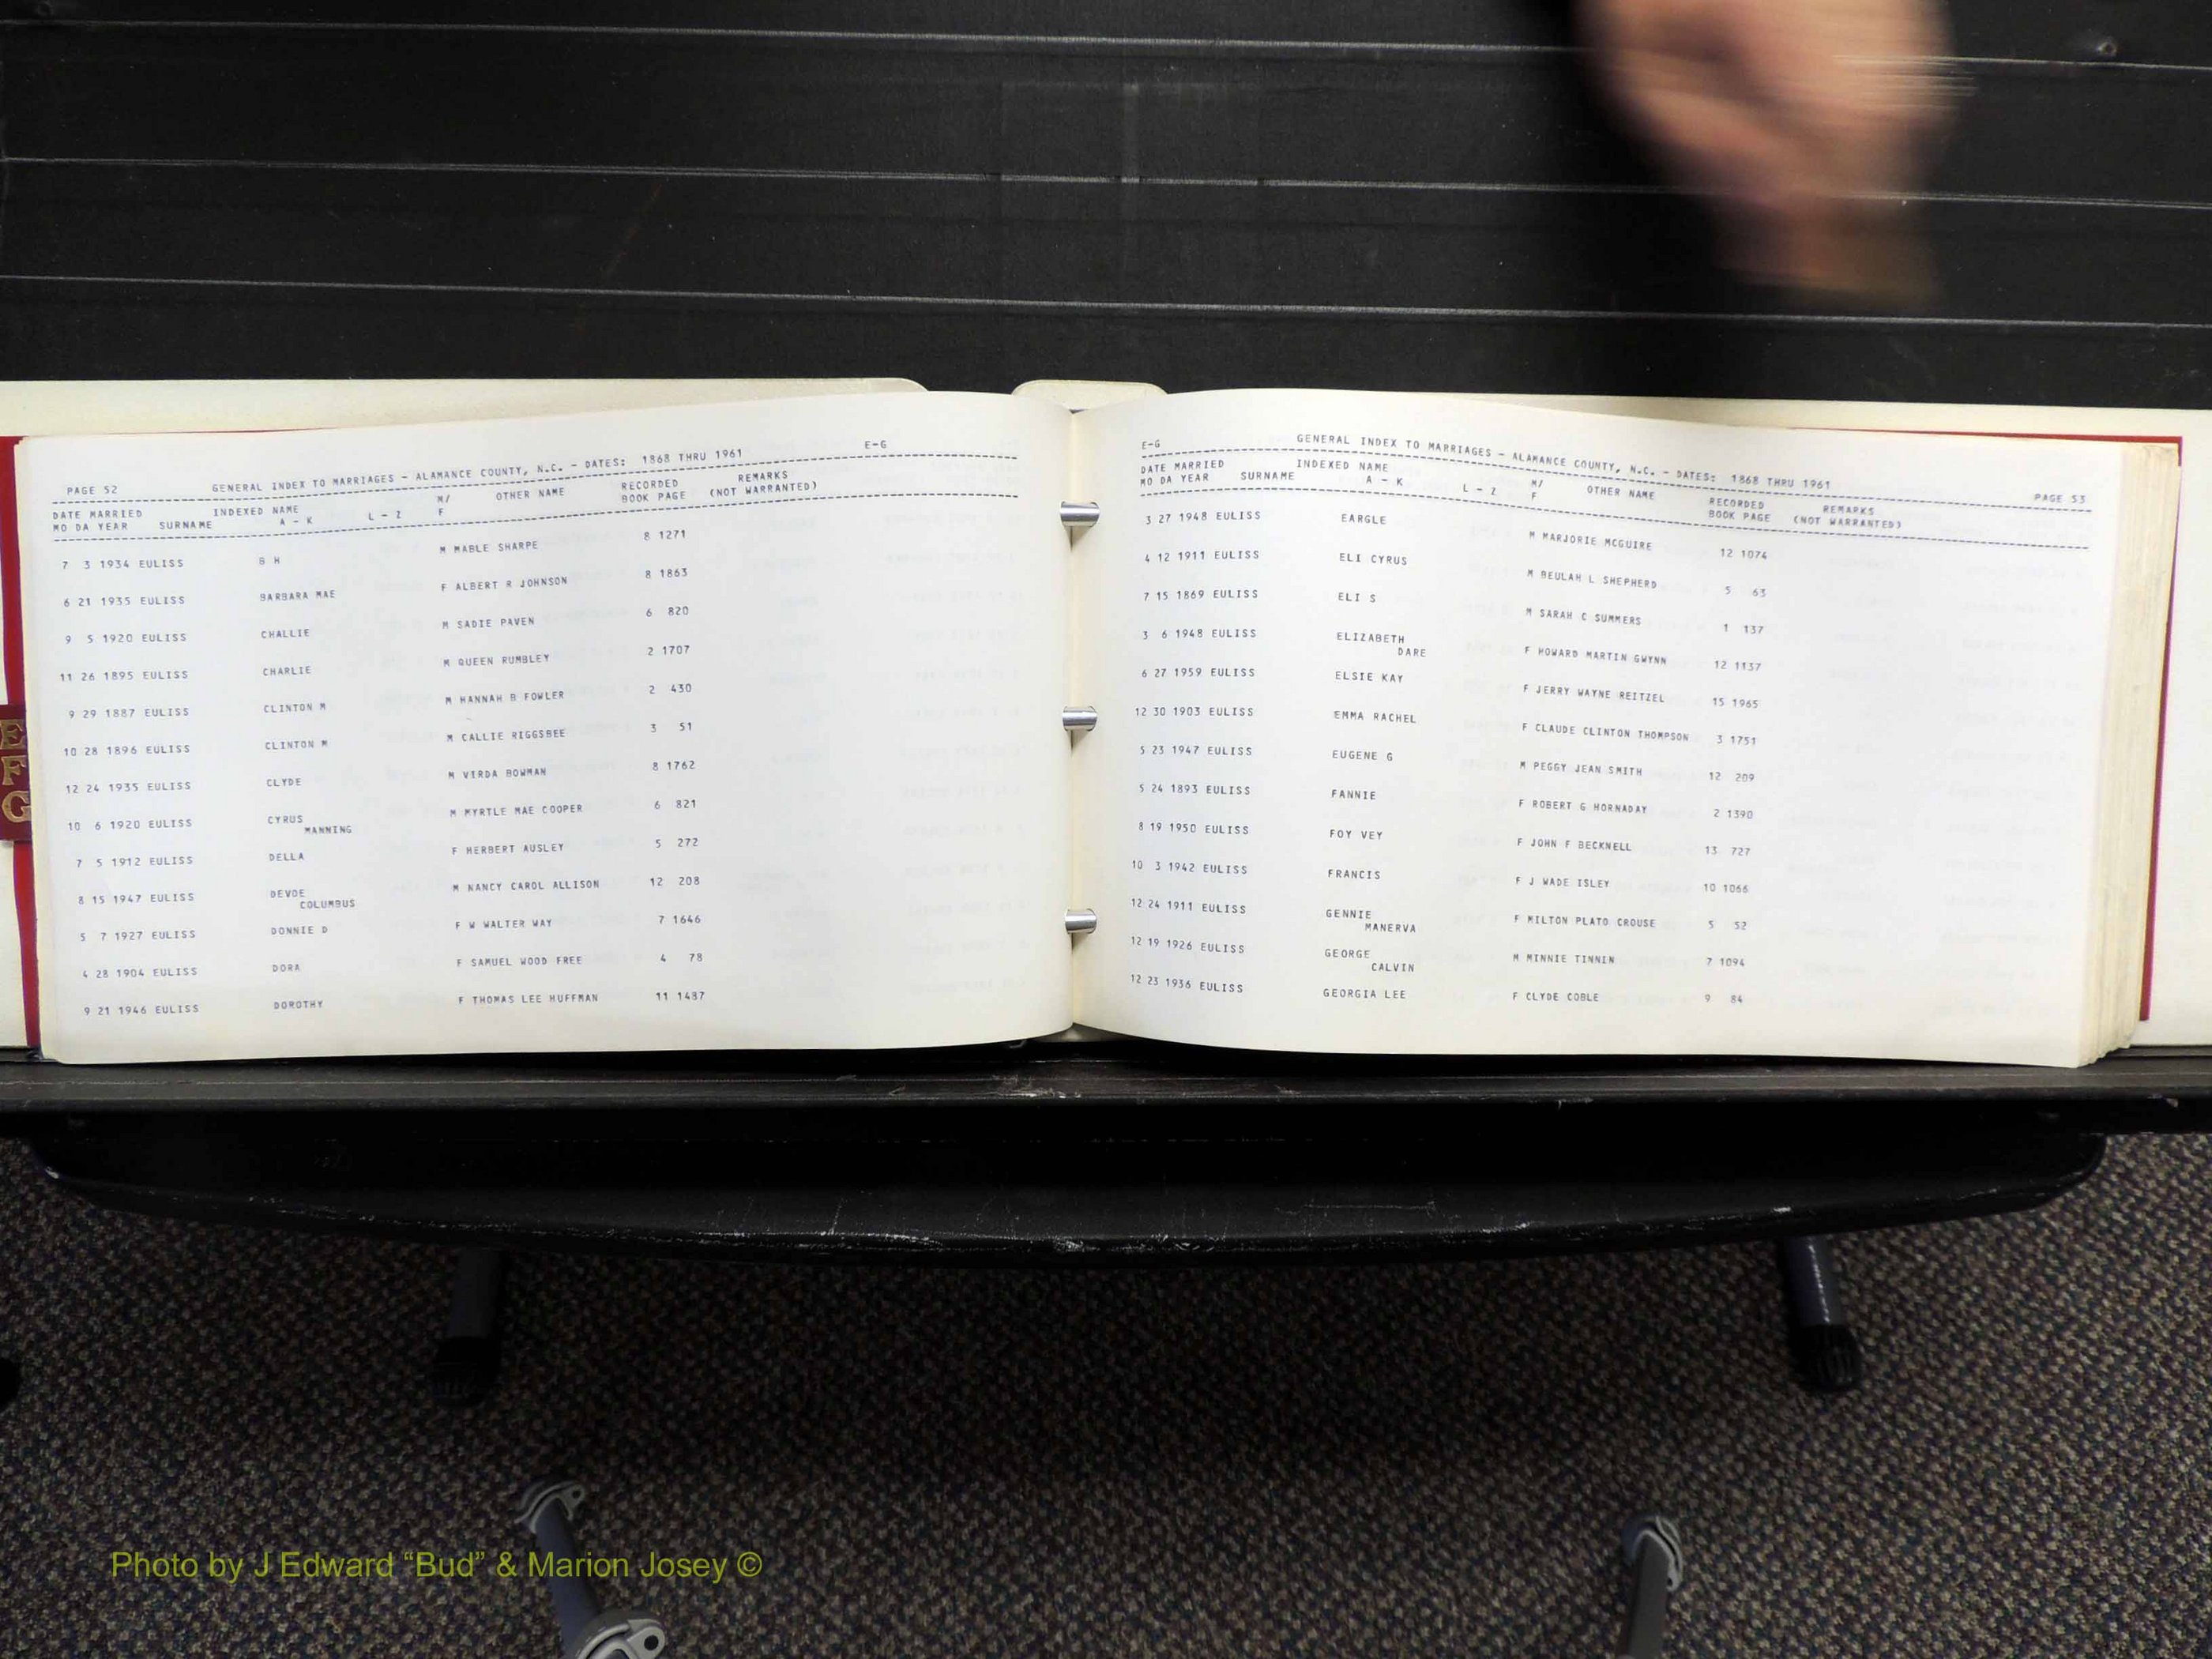 PAGE 52 GENERAL INDEX TO MARRIAGES - ALAMANCE COUNTY, N.C. - DATES: 1868 THRU 1961 E-G
DATE MARRIED INDEXED NAME M/ OTHER NAME RECORDED REMARKS
MO DA YEAR SURNAME A - K L - Z F BOOK PAGE (NOT WARRANTED)
7 3 1934 EULISS B H M MABLE SHARPE 8 1271
6 21 1935 EULISS BARBARA MAE F ALBERT R JOHNSON 8 1863
9 5 1920 EULISS CHALLIE M SADIE PAVEN 6 820
11 26 1895 EULISS CHARLIE M QUEEN RUMBLEY 2 1707
9 29 1887 EULISS CLINTON M M HANNAH B FOWLER 2 430
10 28 1896 EULISS CLINTON M M CALLIE RIGGSBEE 3 51
12 24 1935 EULISS CLYDE M VIRDA BOWMAN 8 1762
10 6 1920 EULISS CYRUS M MYRTLE MAE COOPER 6 821
MANNING
7 5 1912 EULISS DELLA F HERBERT AUSLEY 5 272
8 15 1947 EULISS DEVOE M NANCY CAROL ALLISON 12 208
COLUMBUS
5 7 1927 EULISS DONNIE D F W WALTER WAY 7 1646
4 28 1904 EULISS DORA F SAMUEL WOOD FREE 4 78
9 21 1946 EULISS DOROTHY F THOMAS LEE HUFFMAN 11 1487
E
F
G
E-G GENERAL INDEX TO MARRIAGES - ALAMANCE COUNTY, N.C. - DATES: 1868 THRU 1961 PAGE 53
DATE MARRIED INDEXED NAME M/ OTHER NAME RECORDED REMARKS
MO DA YEAR SURNAME A - K L - Z F BOOK PAGE (NOT WARRANTED)
3 27 1948 EULISS EARGLE M MARJORIE MCGUIRE 12 1074
4 12 1911 EULISS ELI CYRUS M BEULAH L SHEPHERD 5 63
7 15 1869 EULISS ELI S M SARAH C SUMMERS 1 137
3 6 1948 EULISS ELIZABETH F HOWARD MARTIN GWYNN 12 1137
DARE
6 27 1959 EULISS ELSIE KAY F JERRY WAYNE REITZEL 15 1965
12 30 1903 EULISS EMMA RACHEL F CLAUDE CLINTON THOMPSON 3 1751
5 23 1947 EULISS EUGENE G M PEGGY JEAN SMITH 12 209
5 24 1893 EULISS FANNIE F ROBERT G HORNADAY 2 1390
8 19 1950 EULISS FOY VEY F JOHN F BECKNELL 13 727
10 3 1942 EULISS FRANCIS F J WADE ISLEY 10 1066
12 24 1911 EULISS GENNIE F MILTON PLATO CROUSE 5 52
MANERVA
12 19 1926 EULISS GEORGE M MINNIE TINNIN 7 1094
CALVIN
12 23 1936 EULISS GEORGIA LEE F CLYDE COBLE 9 84
Photo by J Edward “Bud” & Marion Josey ©